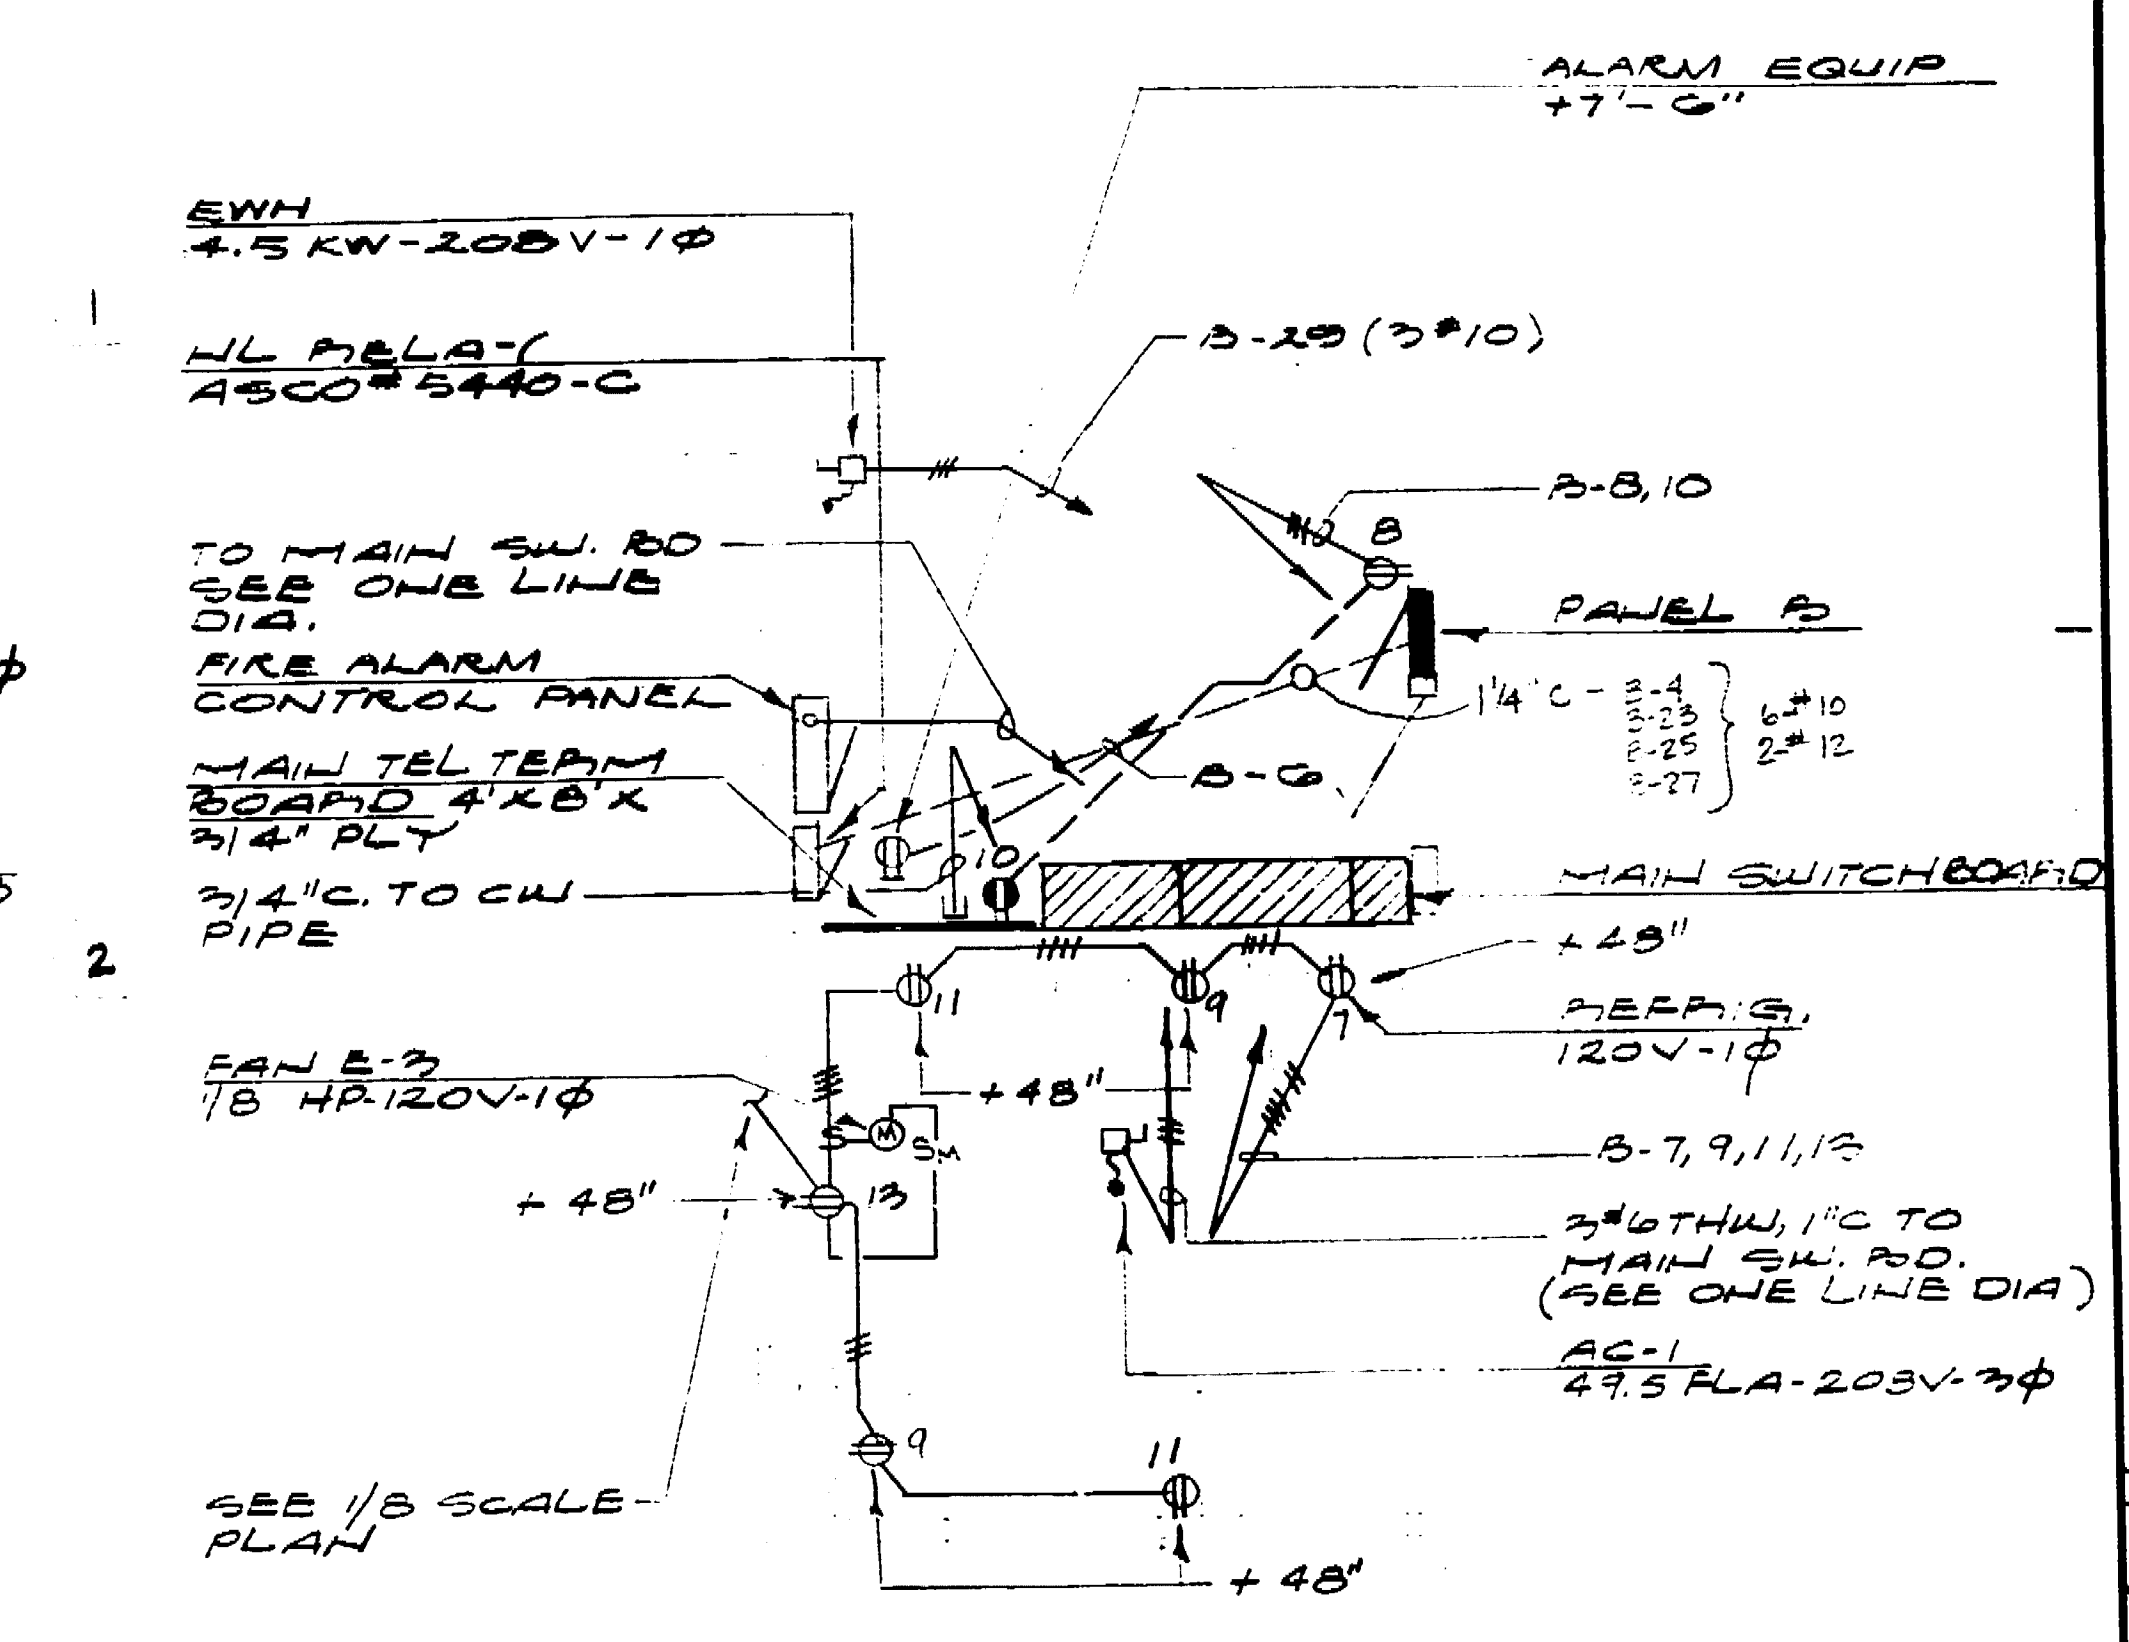 ALARM EQUIP
+7'-6"
EWH
4.5 KW-208V-1Ø
NL RELAY
ASCO # 5440-C
B-29 (3 #10)
B-8,10
8
TO MAIN SW. BD
SEE ONE LINE
DIA.
PANEL B
FIRE ALARM
CONTROL PANEL
1 1/4" C -
B-4
B-23
B-25
B-27
6-#10
2-#12
MAIN TEL TERM
BOARD 4'X8'X
3/4" PLY
B-6
10
3/4"C. TO CW
PIPE
MAIN SWITCHBOARD
1
2
+48"
11
9
7
REFRIG.
120V-1Ø
FAN E-3
1/8 HP-120V-1Ø
+48"
S
M
SM
B-7,9,11,13
+48"
13
3#6 THW, 1"C TO
MAIN SW. BD.
(SEE ONE LINE DIA)
AC-1
49.5 FLA-208V-3Ø
9
11
SEE 1/8 SCALE
PLAN
+48"